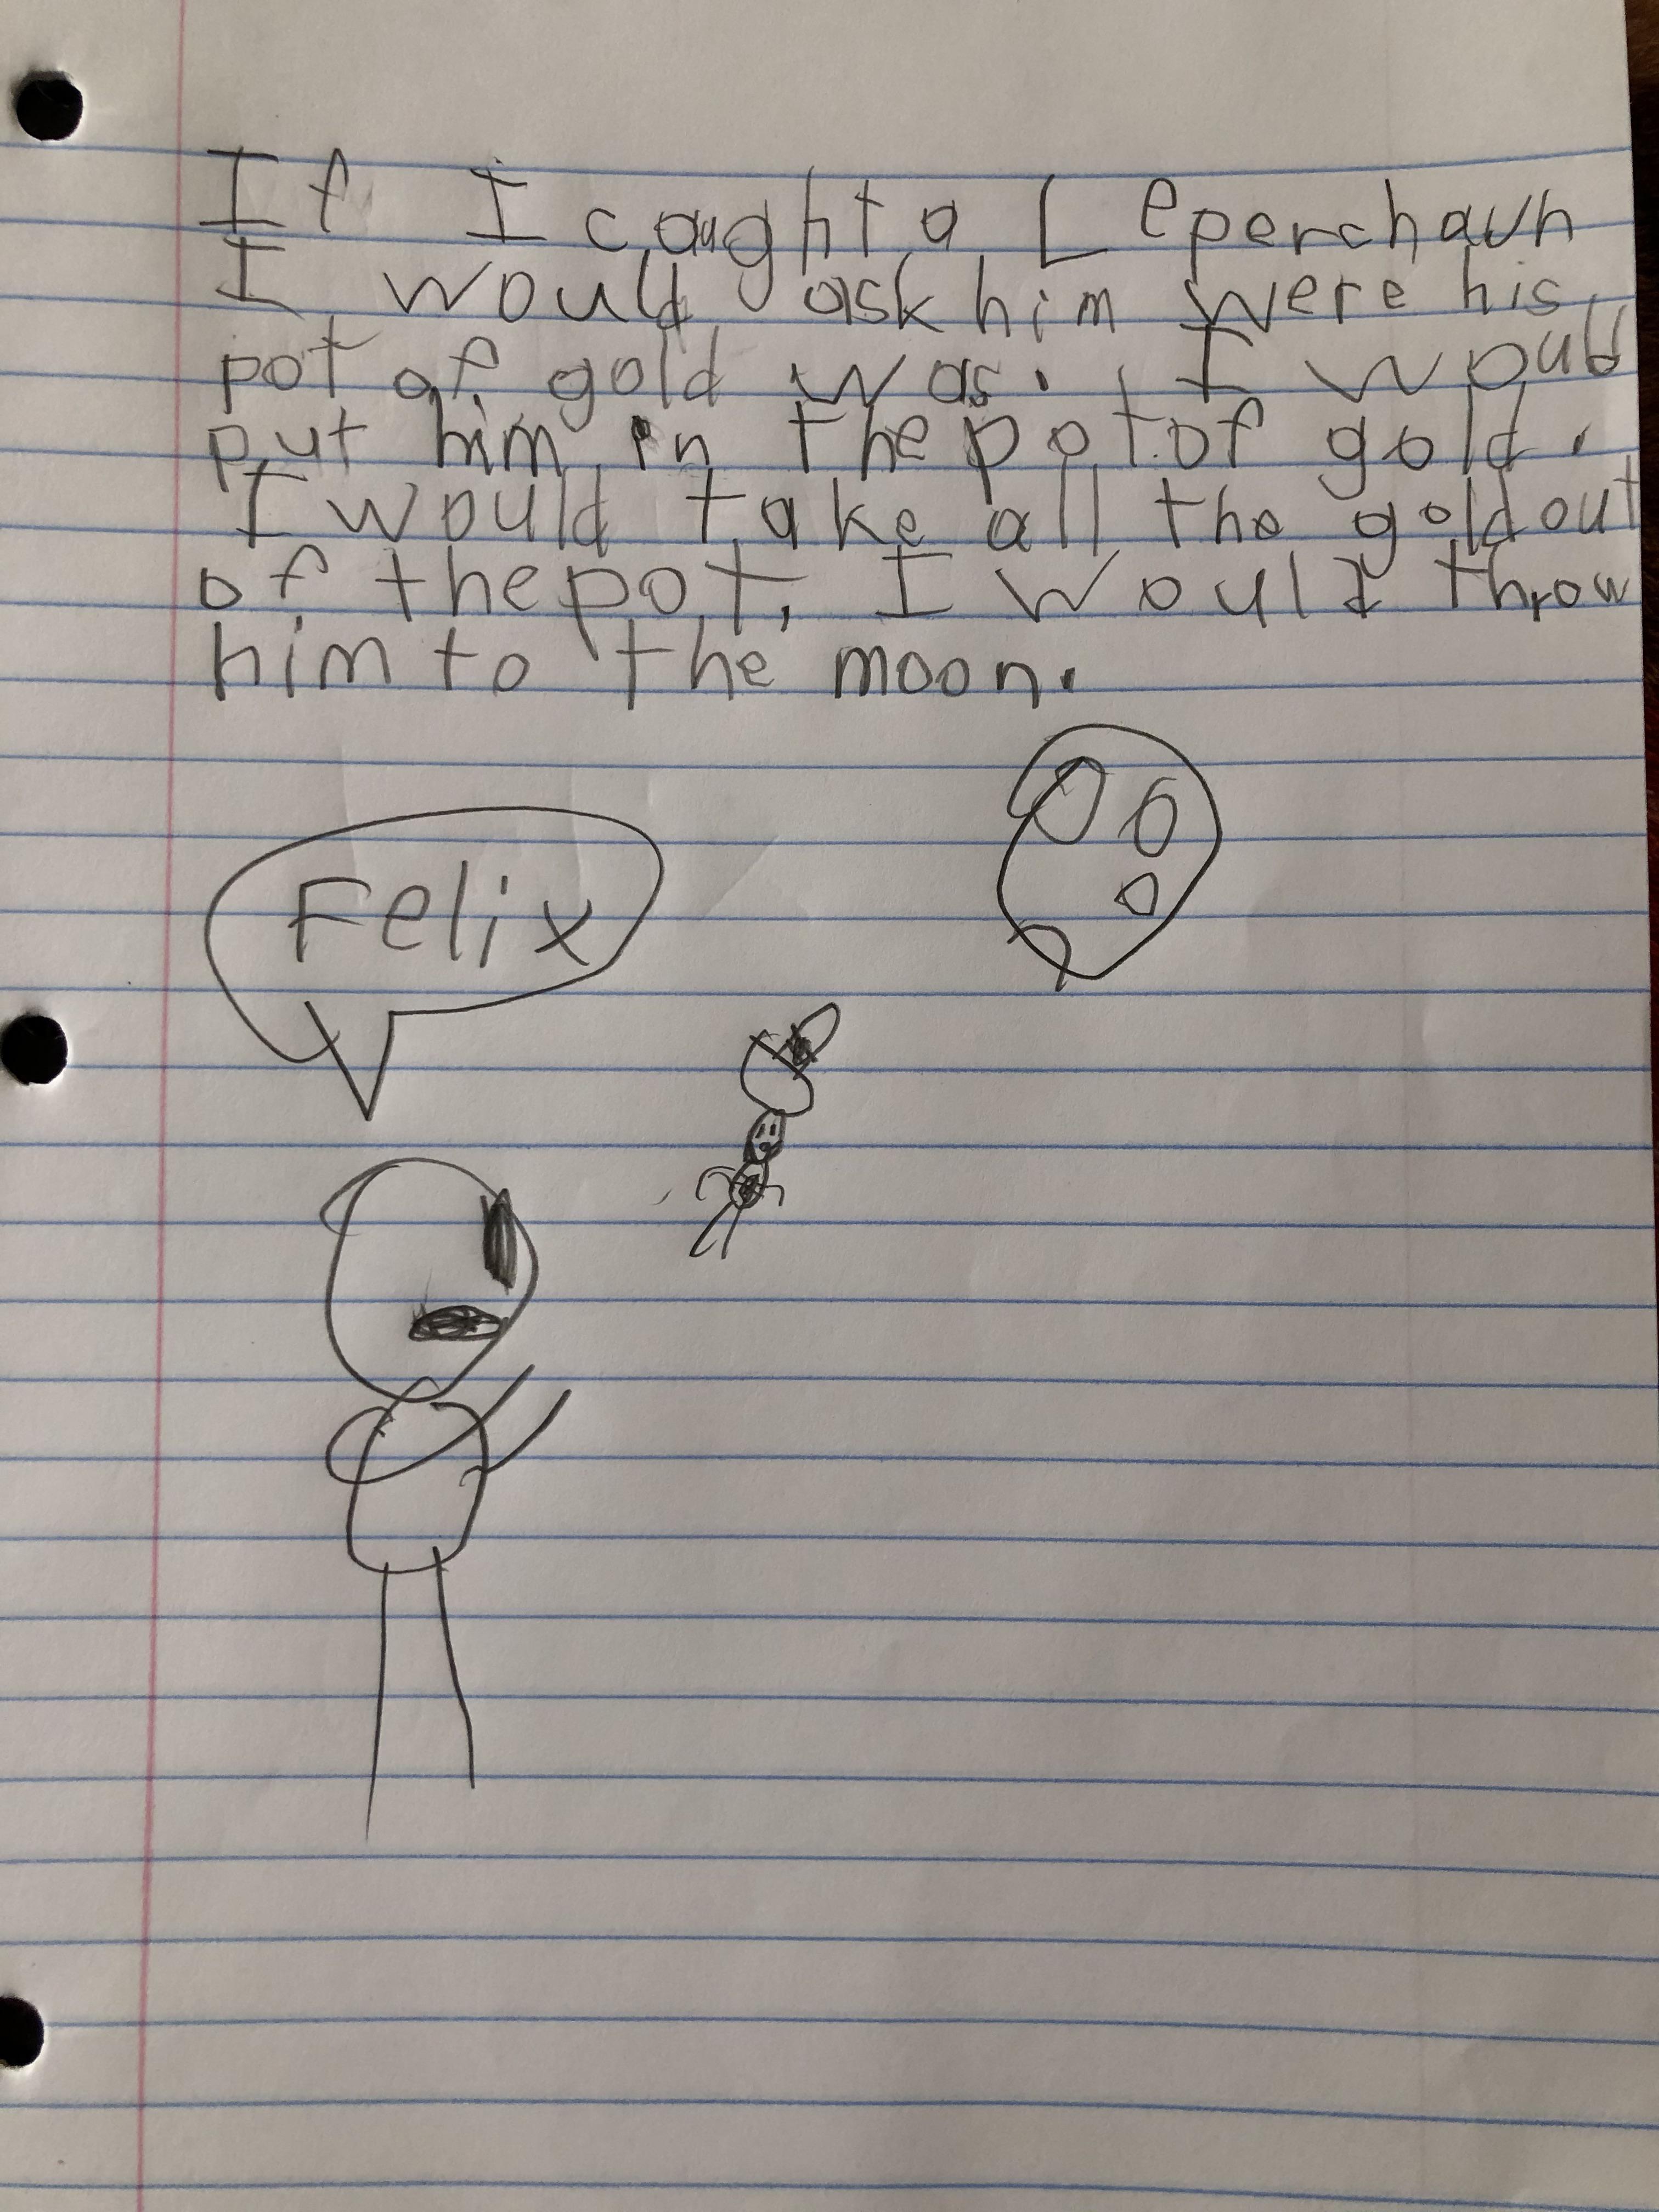 If I caught a Leperchaun
I would ask him were his
pot of gold was. I would
put him in the pot of gold.
I would take all the gold out
of the pot. I would throw
him to the moon.
Felix